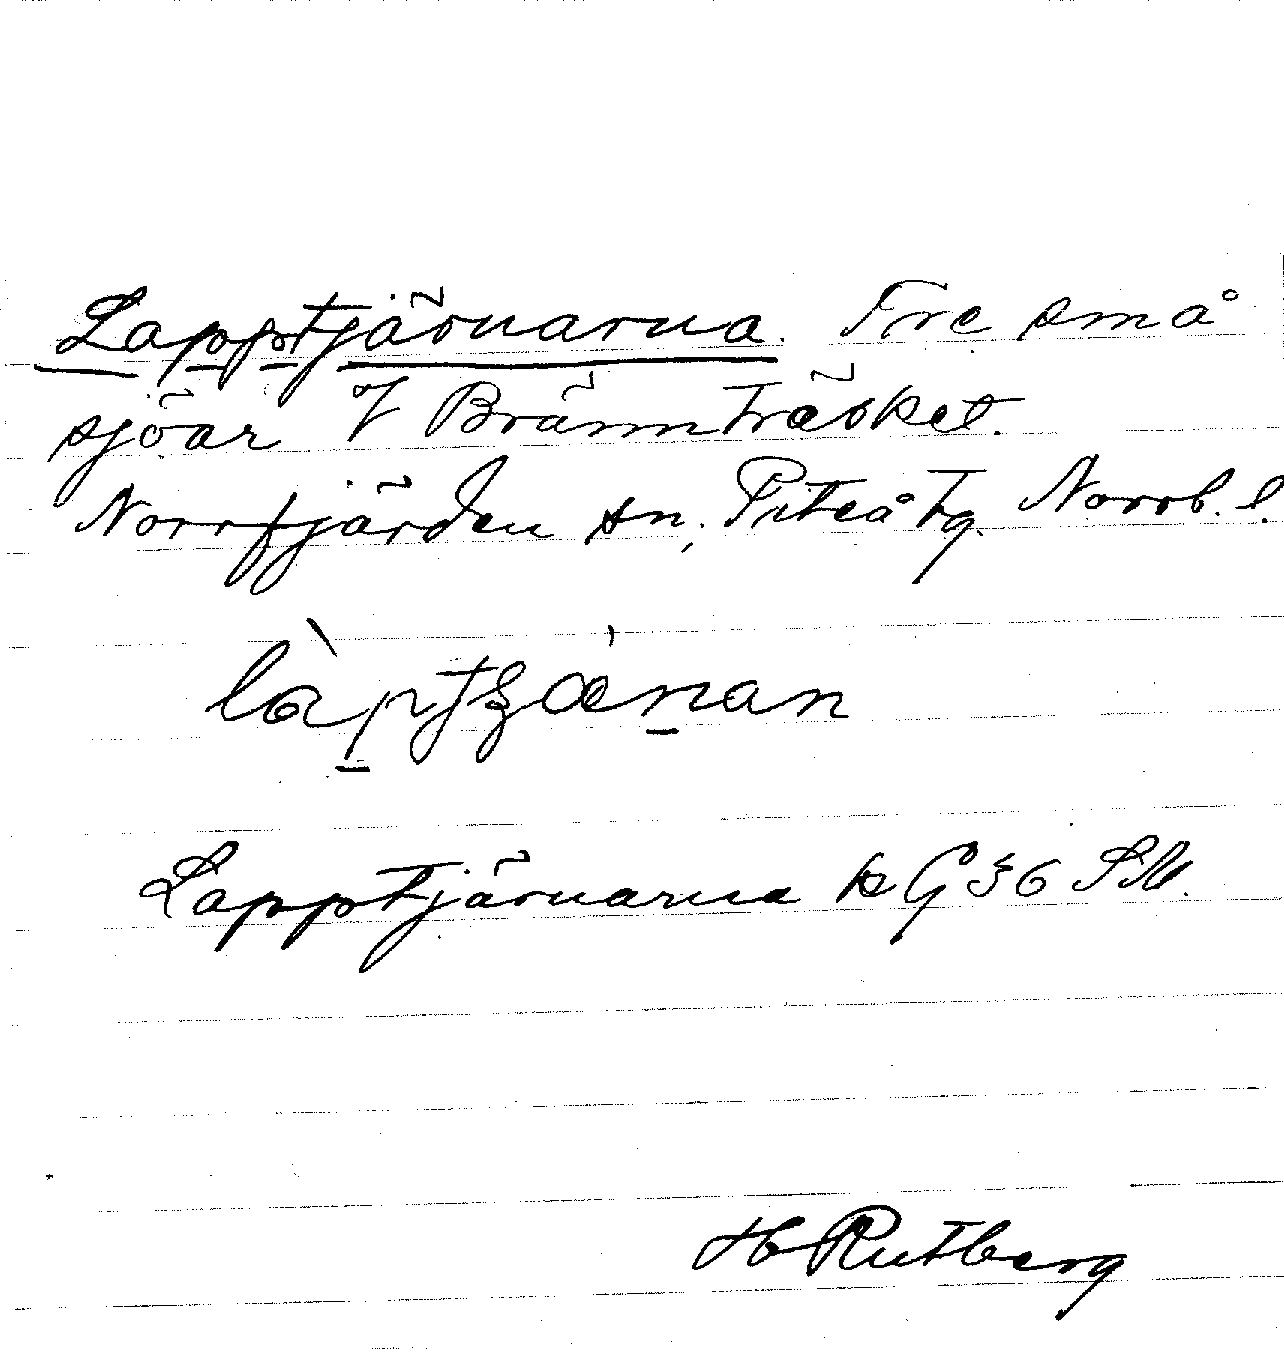 Lapptjärnarna. Tre små
sjöar V Brännträsket.
Norrfjärden sn, Piteå tg. Norrb. l.
Lapptjärnarna k G 36 SM.
H Rutberg